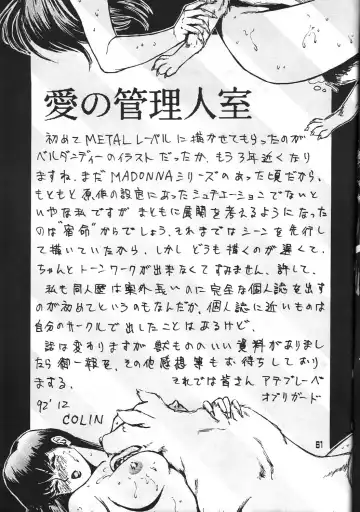 愛の管理人室
初めてMETALレーベルに描かせてもらったのが
ベルダンディーのイラストだったか、もう3年近くなり
ますね。まだMADONNAシリーズのあった頃だから。
もともと原作の設定にあったシュチュエーションでないと
いやな私ですが まともに展開を考えるようになった
のは"密命"からでしょう。それまではシーンを先行し
て描いていたから。しかし どうも描くのが遅くて、
ちゃんとトーンワークが出来なくてすみません、許して。
私も同人歴は案外長いのに完全な個人誌を出す
のが初めてというのもなんだか、個人誌に近いものは
自分のサークルで出したことはあるけど。
話は変わりますが獣もののいい資料がありまし
たら御一報を、その他感想等もお待ちしており
まする。
それでは皆さん アテブレーベ
オブリガード
92'12
COLIN
61